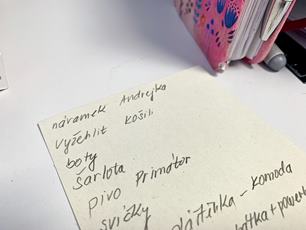 náramek Andrejka
vyžehlit košili
boty
šarlota
pivo Primátor
svíčky
- komoda